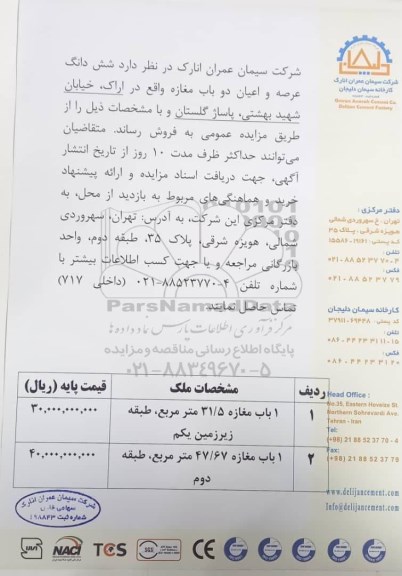 شرکت سیمان عمران انارک
کارخانه سیمان دلیجان
شرکت سیمان عمران انارک در نظر دارد شش دانگ
عرصه و اعیان دو باب مغازه واقع در اراک، خیابان
شهید بهشتی، پاساژ گلستان و با مشخصات ذیل را از
طریق مزایده عمومی به فروش رساند. متقاضیان
می‌توانند حداکثر ظرف مدت ۱۰ روز از تاریخ انتشار
آگهی، جهت دریافت اسناد مزایده و ارائه پیشنهاد
خرید و هماهنگی‌های مربوط به بازدید از محل، به
دفتر مرکزی این شرکت، به آدرس: تهران، سهروردی
شمالی، هویزه شرقی، پلاک ۳۵، طبقه دوم، واحد
بازرگانی مراجعه و یا جهت کسب اطلاعات بیشتر با
شماره تلفن ۴-۸۸۵۲۳۷۷۰-۰۲۱ (داخلی ۷۱۷)
تماس حاصل نمایند.
ParsNamadData
مرکز فرآوری اطلاعات پارس نماد داده‌ها
پایگاه اطلاع رسانی مناقصه و مزایده
۰۲۱-۸۸۳۴۹۶۷۰-۵
ردیف مشخصات ملک قیمت پایه (ریال)
۱ ۱ باب مغازه ۳۱/۵ متر مربع، طبقه زیرزمین یکم ۳۰,۰۰۰,۰۰۰,۰۰۰
۲ ۱ باب مغازه ۴۷/۶۷ متر مربع، طبقه دوم ۴۰,۰۰۰,۰۰۰,۰۰۰
دفتر مرکزی :
تهران . خ سهروردی شمالی
هویزه شرقی . پلاک ۳۵
تلفن :
۰۲۱- ۸۸ ۵۲ ۳۷ ۷۰-۴
فکس :
۰۲۱- ۸۸ ۵۲ ۳۷ ۷۹
کارخانه سیمان دلیجان
تلفن :
۰۸۶- ۴۴ ۲۳ ۳۱ ۱۱-۱۵
فکس :
۰۸۶- ۴۴ ۲۳ ۳۱ ۲۰
Head Office :
No.35, Eastern Hoveize St.
Northern Sohrevardi Ave.
Tehran - Iran
Tel:
(+98) 21 88 52 37 70 - 4
Fax:
(+98) 21 88 52 37 79
www.delijancement.com
Info@delijancement.com
شرکت سیمان عمران انارک
سهامی خاص
شماره ثبت : ۹۸۸۴۳
NACI TCS SGS